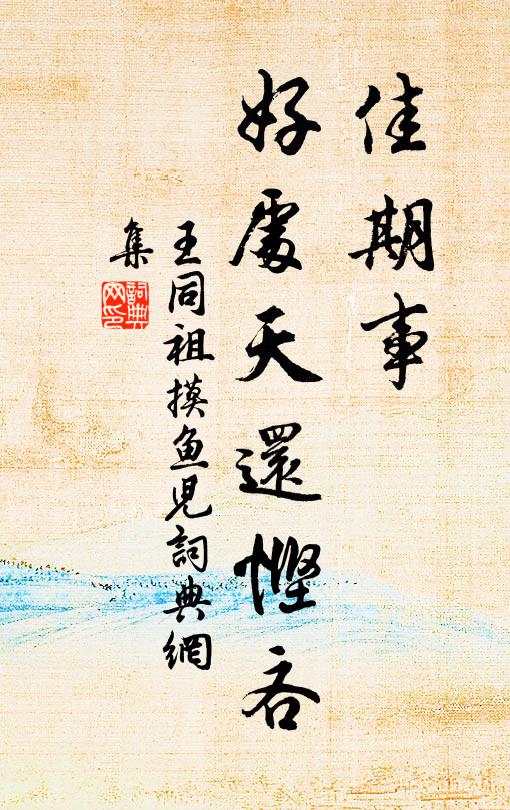 佳期事
好處天還慳吝
王同祖摸鱼児詞典網
集
詞典
网印